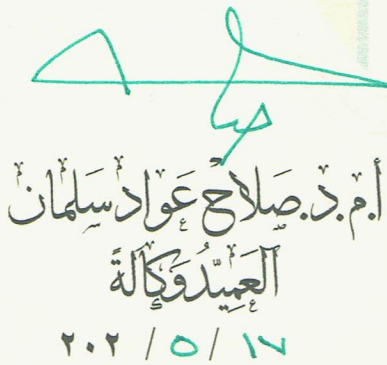 أ.م.د.صلاح عواد سلمان
العميد وكالة
١٧ / ٥ / ٢٠٢